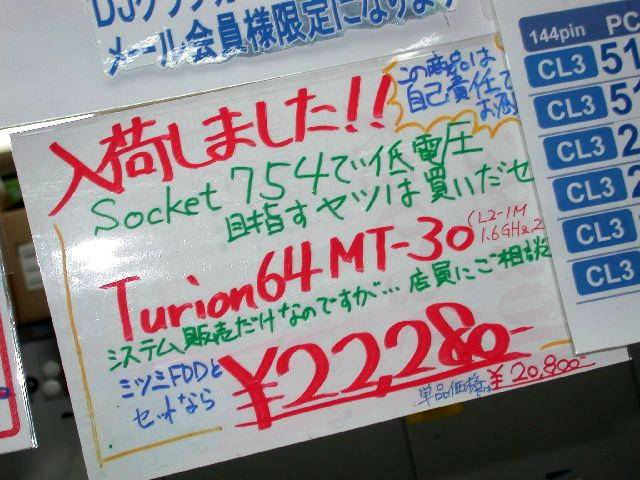 メール会員様限定になります
入荷しました!!
この商品は
自己責任で
Socket 754で低電圧
目指すヤツは買いだゼ
Turion64 MT-30
(L2-1M
1.6GHz
システム販売だけなのですが…店員にご相談
ミツミFDDと
セットなら
¥22,280-
単品価格は¥20,800
144pin PC
CL3 51
CL3 51
CL3 2
CL3 2
CL3
CL3